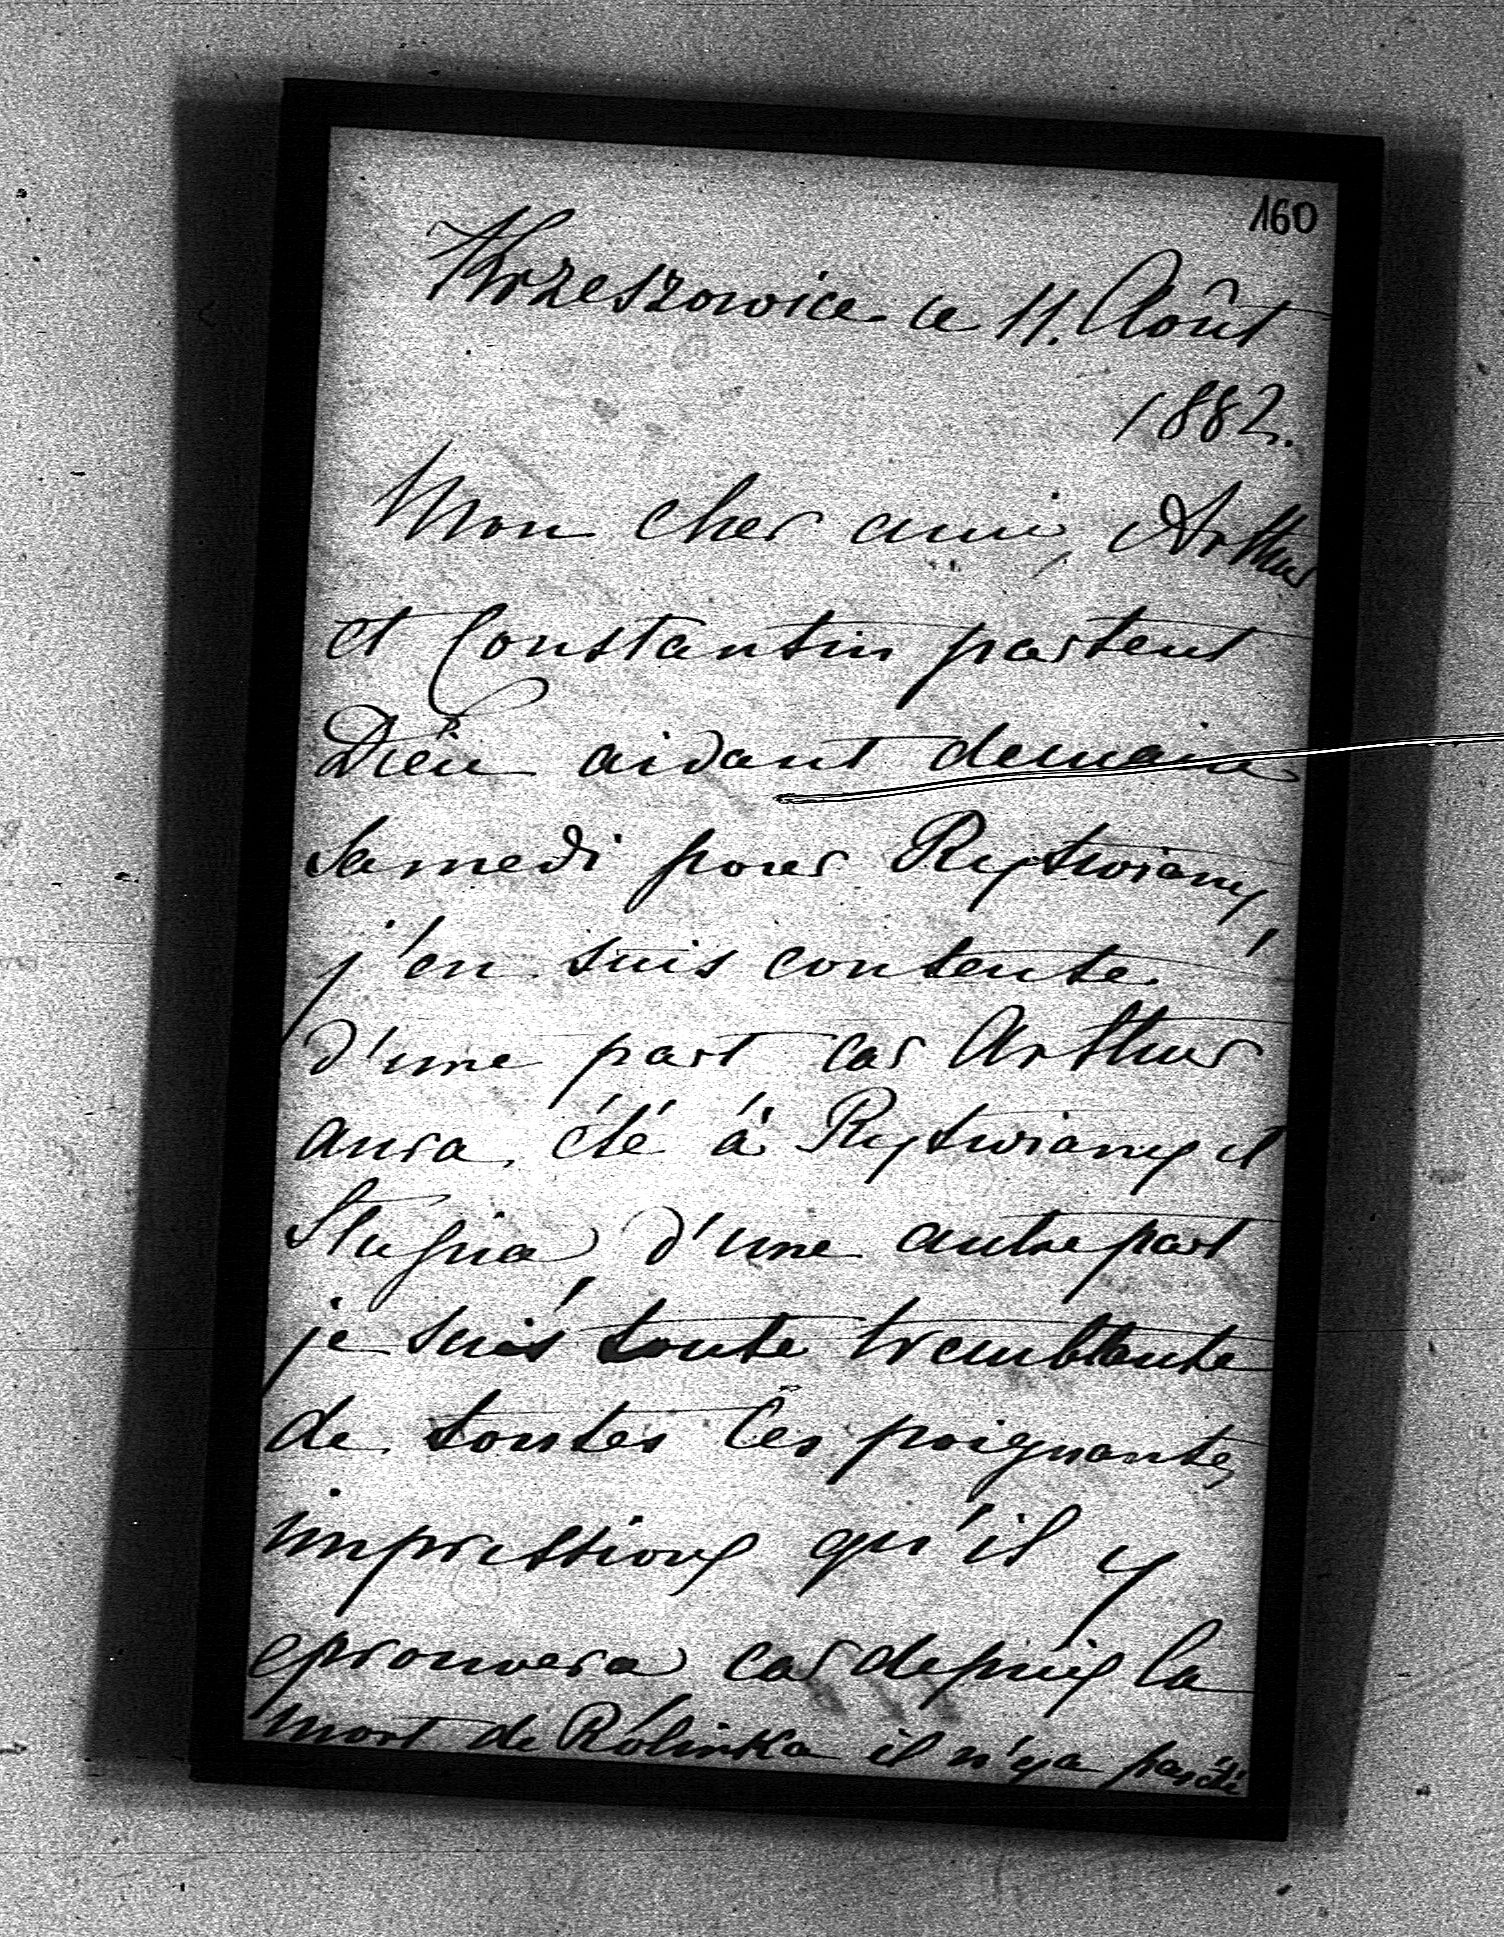 160
Krzeszowice ce 11. Août
1882.
Mon cher ami, Arthur
et Constantin partent
Dieu aidant demain
Samedi pour Rytwiany
j'en suis contente
d'une part car Arthur
aura été à Rytwiany et
d'une autre part
je suis toute tremblante
de toutes les poignantes
impressions qu'il y
eprouvera car depuis la
mort de Rólinka il n'y a pas été